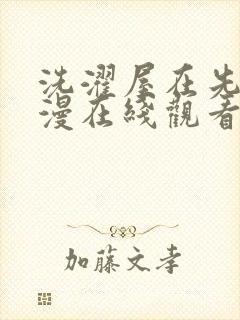 洗濯屋在先
漫在綫觀看
加藤文孝